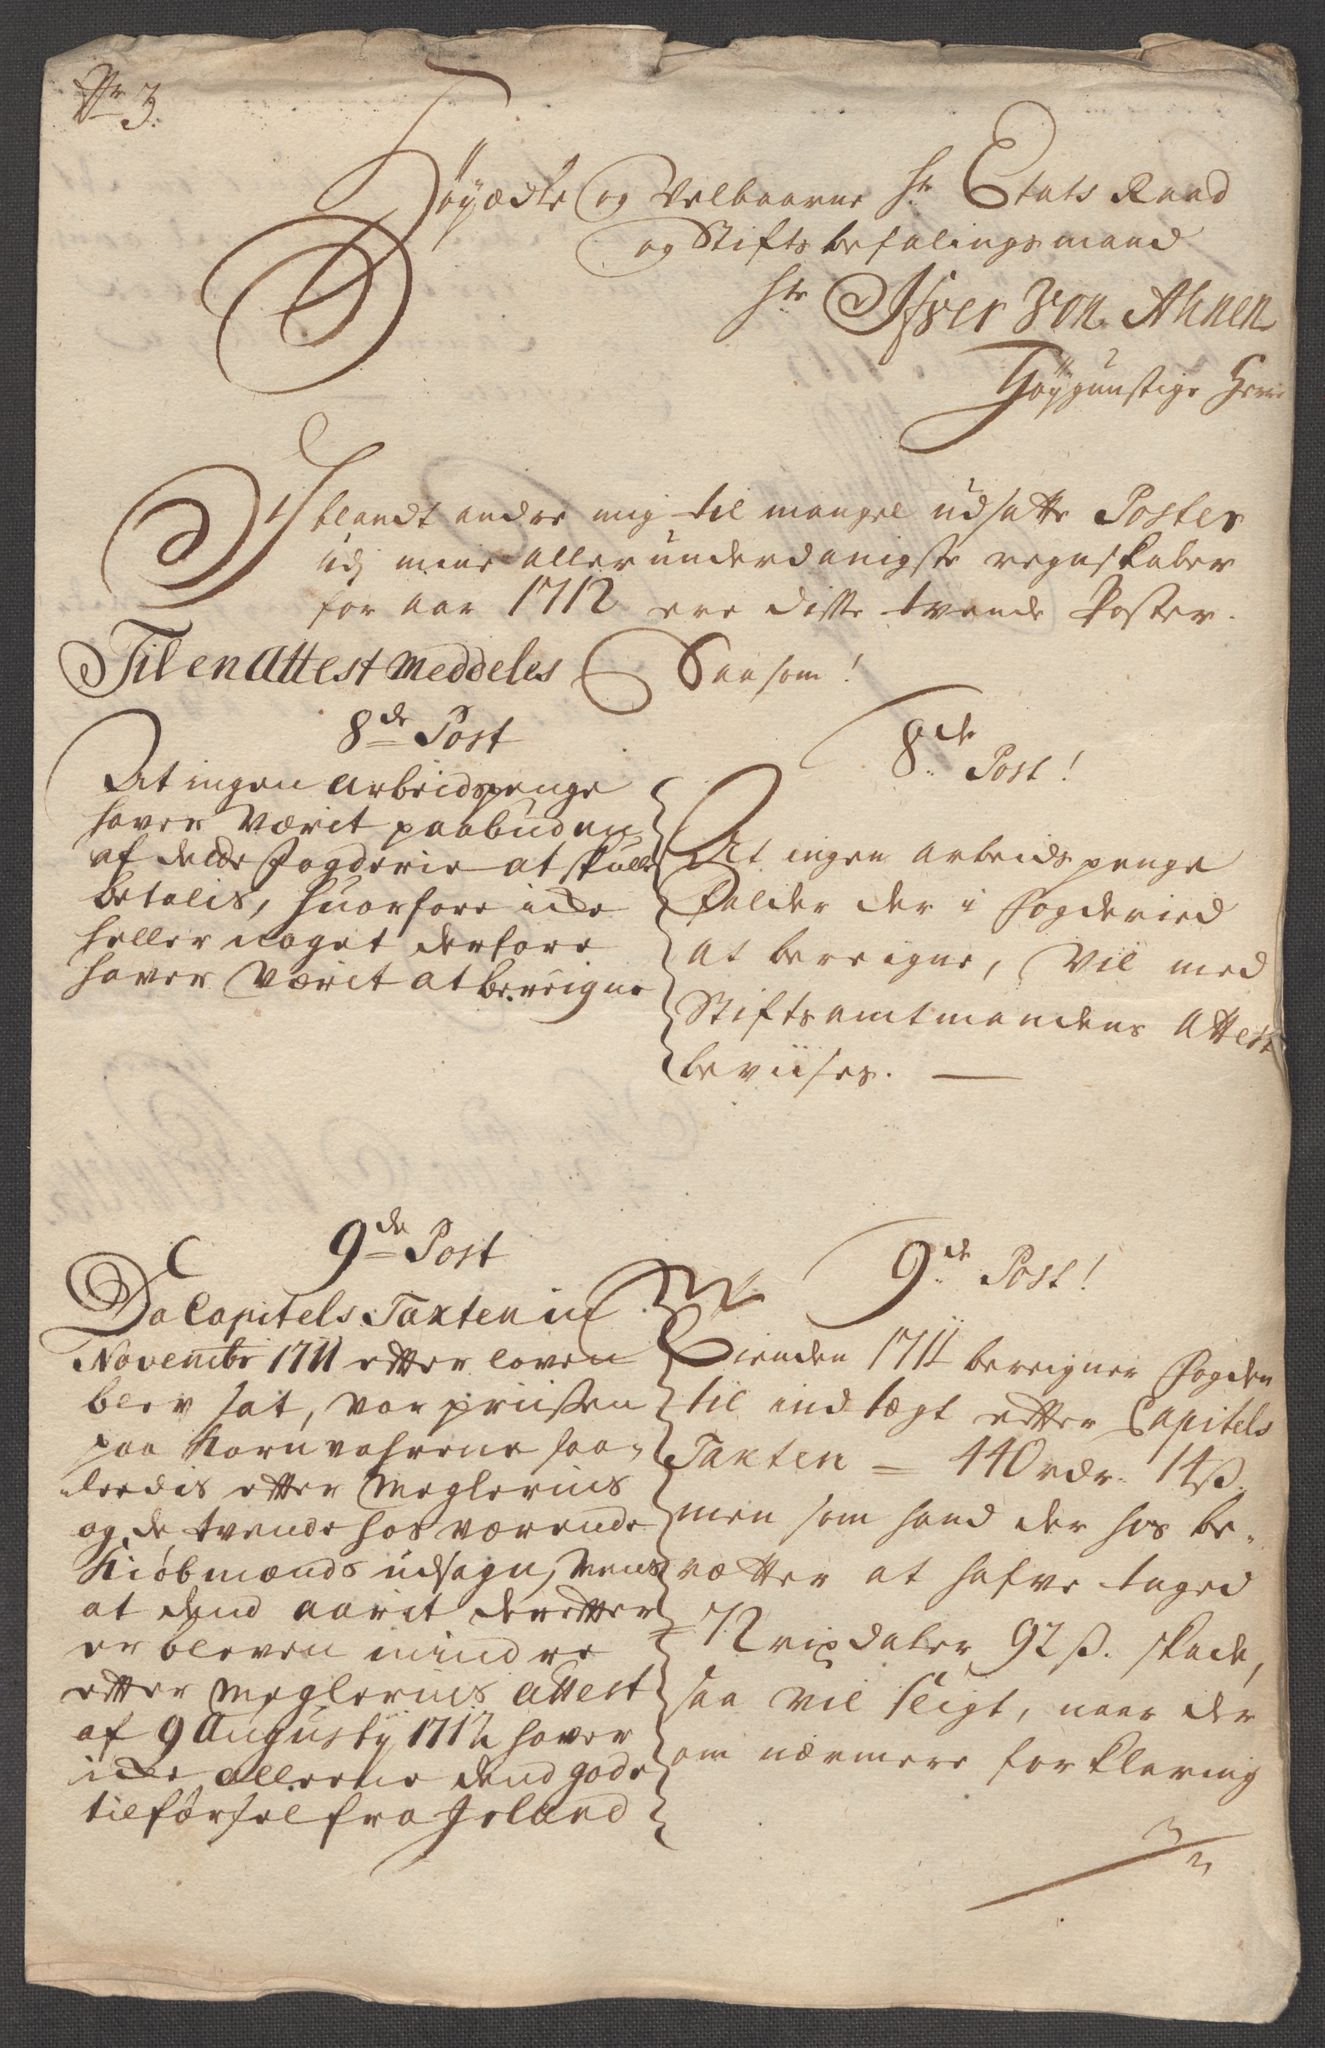 Nr 3.
Høyædle og Velbaarne Hr Etats Raad
og Stifts befalings mand
Hr Ifver Von Ahnen
Høygunstige Herre
Iblandt andre mig til mangel udsatte Poster
udj mine allerunderdanigste regnskaber
for aar 1712 ere disse tvende Poster.
Saasom!
Til en Attest Meddeles
8de Post
At ingen arbeidspenge
haver Værit paabuden
af dette Fogderie at skulle
betalis, huorfore icke
heller noget derfore
haver Værit at bereigne
8de Post!
At ingen arbeids penge
falder der i Fogderied
at bereigne, Vil med
Stiftsamtmandens Attest
beviises.
9de Post
Da Capitels Taxten in
Novembr 1711 etter loven
blev sat, var priisen
paa Kornvahrene saa-
ledis etter Meglerens
og de tvende hos værende
Kiøbmænds udsagn, Mens
at dend aarit deretter
er bleven mindre
etter Meglerens Attest
af 9 Augusty 1712 haver
icke allene dend gode
tilførsel fra Jrland
9de Post!
Tienden 1711 bereigner Fogden
til indtægt etter Capitels
Taxten = 440 rdr. 14 ß.
men som hand der hos be-
rætter at hafve taged
72 rixdaler 92 ß. skade,
saa vil sligt, naar der
om nærmere forklaring